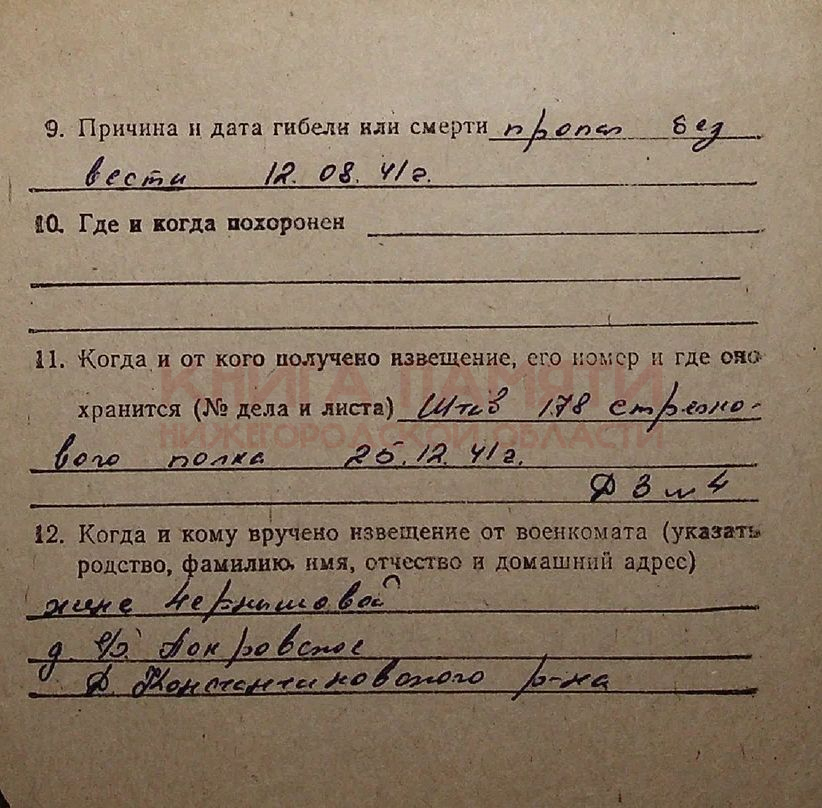 9. Причина и дата гибели или смерти пропал без
вести 12.08.41г.
10. Где и когда похоронен
11. Когда и от кого получено извещение, его номер и где оно
КНИГА ПАМЯТИ
хранится (№ дела и листа) Штаб 178 стрелко-
НИЖЕГОРОДСКОЙ ОБЛАСТИ
вого полка 25.12.41г.
Д 3 л 4
12. Когда и кому вручено извещение от военкомата (указать
родство, фамилию, имя, отчество и домашний адрес)
жене Чернышовой
д. Покровское
Д. Константиновского р-на